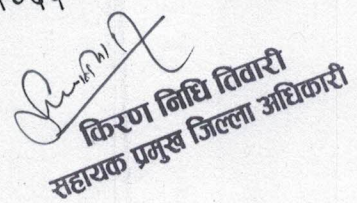 किरण निधि तिवारी
सहायक प्रमुख जिल्ला अधिकारी